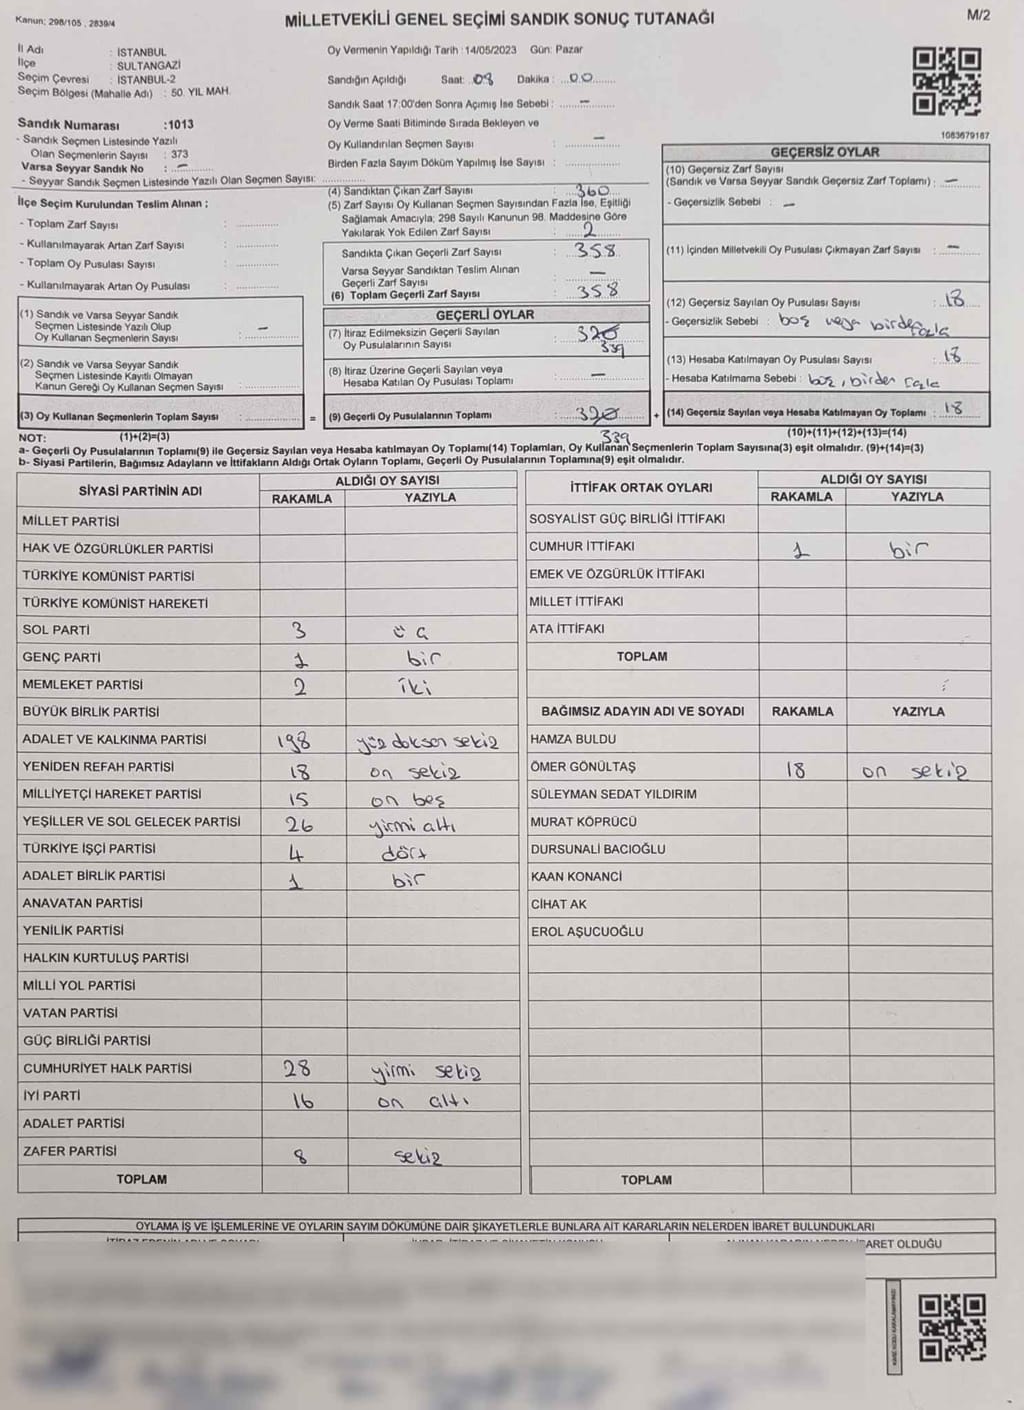 Kanun; 298/105 , 2839/4
MİLLETVEKİLİ GENEL SEÇİMİ SANDIK SONUÇ TUTANAĞI
M/2
İl Adı : İSTANBUL
İlçe : SULTANGAZİ
Seçim Çevresi : İSTANBUL-2
Seçim Bölgesi (Mahalle Adı) : 50. YIL MAH.
Sandık Numarası :1013
- Sandık Seçmen Listesinde Yazılı
Olan Seçmenlerin Sayısı : 373
Varsa Seyyar Sandık No : –
- Seyyar Sandık Seçmen Listesinde Yazılı Olan Seçmen Sayısı: ..............
Oy Vermenin Yapıldığı Tarih :14/05/2023 Gün: Pazar
Sandığın Açıldığı Saat: 08 Dakika : 00
Sandık Saat 17:00'den Sonra Açımış İse Sebebi : –
Oy Verme Saati Bitiminde Sırada Bekleyen ve
Oy Kullandırılan Seçmen Sayısı : –
Birden Fazla Sayım Döküm Yapılmış İse Sayısı : ..............
1083679187
İlçe Seçim Kurulundan Teslim Alınan ;
- Toplam Zarf Sayısı : ..............
- Kullanılmayarak Artan Zarf Sayısı : ..............
- Toplam Oy Pusulası Sayısı : ..............
- Kullanılmayarak Artan Oy Pusulası : ..............
(1) Sandık ve Varsa Seyyar Sandık
Seçmen Listesinde Yazılı Olup : –
Oy Kullanan Seçmenlerin Sayısı
(2) Sandık ve Varsa Seyyar Sandık
Seçmen Listesinde Kayıtlı Olmayan
Kanun Gereği Oy Kullanan Seçmen Sayısı : ..............
(3) Oy Kullanan Seçmenlerin Toplam Sayısı : .............. =
(1)+(2)=(3)
(4) Sandıktan Çıkan Zarf Sayısı : 360
(5) Zarf Sayısı Oy Kullanan Seçmen Sayısından Fazla İse, Eşitliği
Sağlamak Amacıyla; 298 Sayılı Kanunun 98. Maddesine Göre
Yakılarak Yok Edilen Zarf Sayısı : 2
Sandıkta Çıkan Geçerli Zarf Sayısı : 358
Varsa Seyyar Sandıktan Teslim Alınan
Geçerli Zarf Sayısı : –
(6) Toplam Geçerli Zarf Sayısı : 358
GEÇERLİ OYLAR
(7) İtiraz Edilmeksizin Geçerli Sayılan 320
Oy Pusulalarının Sayısı : 339
(8) İtiraz Üzerine Geçerli Sayılan veya
Hesaba Katılan Oy Pusulası Toplamı : –
(9) Geçerli Oy Pusulalarının Toplamı : 320 +
339
GEÇERSİZ OYLAR
(10) Geçersiz Zarf Sayısı
(Sandık ve Varsa Seyyar Sandık Geçersiz Zarf Toplamı) : –
- Geçersizlik Sebebi : –
(11) İçinden Milletvekili Oy Pusulası Çıkmayan Zarf Sayısı : –
(12) Geçersiz Sayılan Oy Pusulası Sayısı : 18
- Geçersizlik Sebebi : boş veya birden fazla
(13) Hesaba Katılmayan Oy Pusulası Sayısı : 18
- Hesaba Katılmama Sebebi : boş, birden fazla
(14) Geçersiz Sayılan veya Hesaba Katılmayan Oy Toplamı : 18
(10)+(11)+(12)+(13)=(14)
NOT:
a- Geçerli Oy Pusulalarının Toplamı(9) ile Geçersiz Sayılan veya Hesaba katılmayan Oy Toplamı(14) Toplamları, Oy Kullanan Seçmenlerin Toplam Sayısına(3) eşit olmalıdır. (9)+(14)=(3)
b- Siyasi Partilerin, Bağımsız Adayların ve İttifakların Aldığı Ortak Oyların Toplamı, Geçerli Oy Pusulalarının Toplamına(9) eşit olmalıdır.
SİYASİ PARTİNİN ADI ALDIĞI OY SAYISI
RAKAMLA YAZIYLA
MİLLET PARTİSİ
HAK VE ÖZGÜRLÜKLER PARTİSİ
TÜRKİYE KOMÜNİST PARTİSİ
TÜRKİYE KOMÜNİST HAREKETİ
SOL PARTİ 3 üç
GENÇ PARTİ 1 bir
MEMLEKET PARTİSİ 2 iki
BÜYÜK BİRLİK PARTİSİ
ADALET VE KALKINMA PARTİSİ 198 yüz doksan sekiz
YENİDEN REFAH PARTİSİ 18 on sekiz
MİLLİYETÇİ HAREKET PARTİSİ 15 on beş
YEŞİLLER VE SOL GELECEK PARTİSİ 26 yirmi altı
TÜRKİYE İŞÇİ PARTİSİ 4 dört
ADALET BİRLİK PARTİSİ 1 bir
ANAVATAN PARTİSİ
YENİLİK PARTİSİ
HALKIN KURTULUŞ PARTİSİ
MİLLİ YOL PARTİSİ
VATAN PARTİSİ
GÜÇ BİRLİĞİ PARTİSİ
CUMHURİYET HALK PARTİSİ 28 yirmi sekiz
İYİ PARTİ 16 on altı
ADALET PARTİSİ
ZAFER PARTİSİ 8 sekiz
TOPLAM
İTTİFAK ORTAK OYLARI ALDIĞI OY SAYISI
RAKAMLA YAZIYLA
SOSYALİST GÜÇ BİRLİĞİ İTTİFAKI
CUMHUR İTTİFAKI 1 bir
EMEK VE ÖZGÜRLÜK İTTİFAKI
MİLLET İTTİFAKI
ATA İTTİFAKI
TOPLAM
BAĞIMSIZ ADAYIN ADI VE SOYADI RAKAMLA YAZIYLA
HAMZA BULDU
ÖMER GÖNÜLTAŞ 18 on sekiz
SÜLEYMAN SEDAT YILDIRIM
MURAT KÖPRÜCÜ
DURSUNALİ BACIOĞLU
KAAN KONANCİ
CİHAT AK
EROL AŞUCUOĞLU
TOPLAM
OYLAMA İŞ VE İŞLEMLERİNE VE OYLARIN SAYIM DÖKÜMÜNE DAİR ŞİKAYETLERLE BUNLARA AİT KARARLARIN NELERDEN İBARET BULUNDUKLARI
OLDUĞU